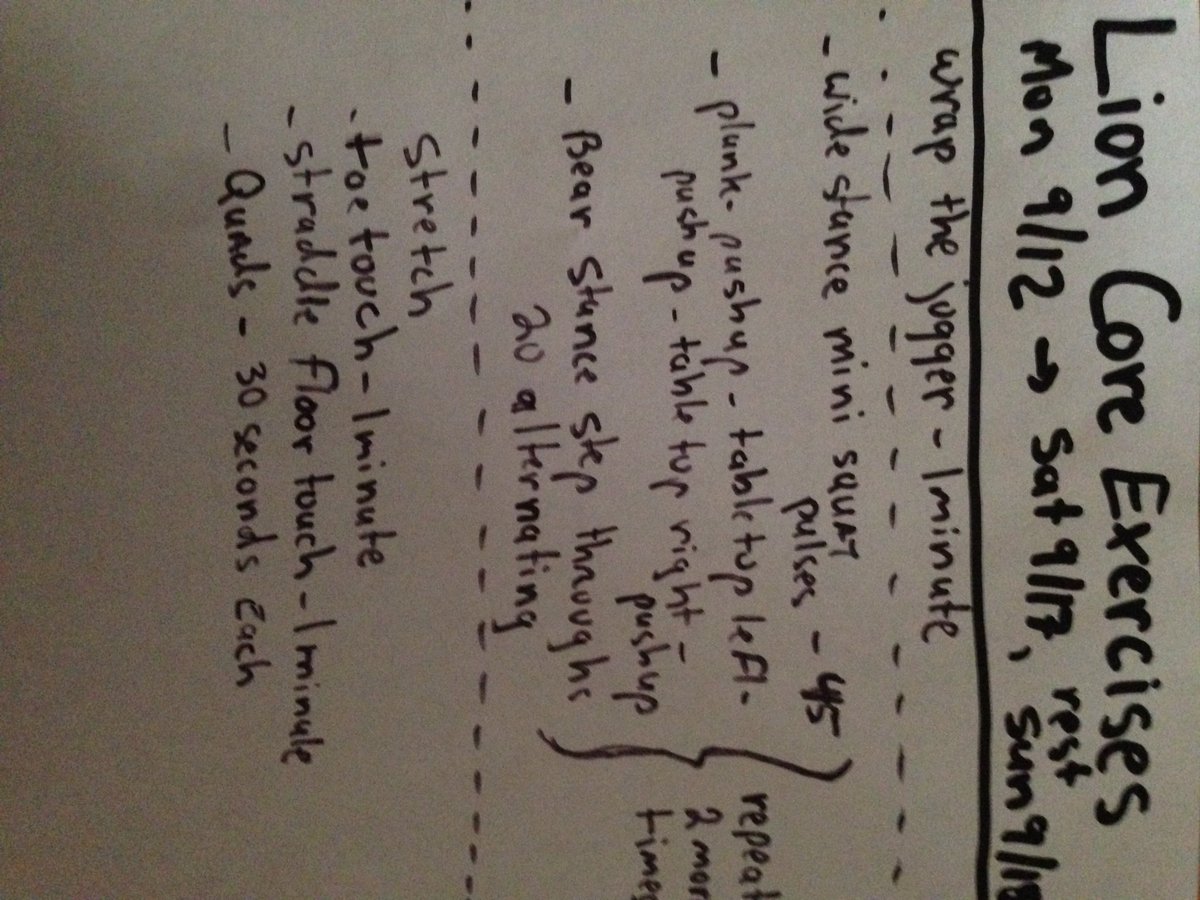 Lion Core Exercises
Mon 9/12 → Sat 9/17, rest
sun 9/18
wrap the jogger - 1 minute
- wide stance mini squAT
pulses - 45
- plank - pushup - tabletop left -
pushup - tabletop right -
pushup
- Bear stance step throughs
20 alternating
} repeat
2 more
times
Stretch
- toe touch - 1 minute
- straddle floor touch - 1 minute
- Quads - 30 seconds Each